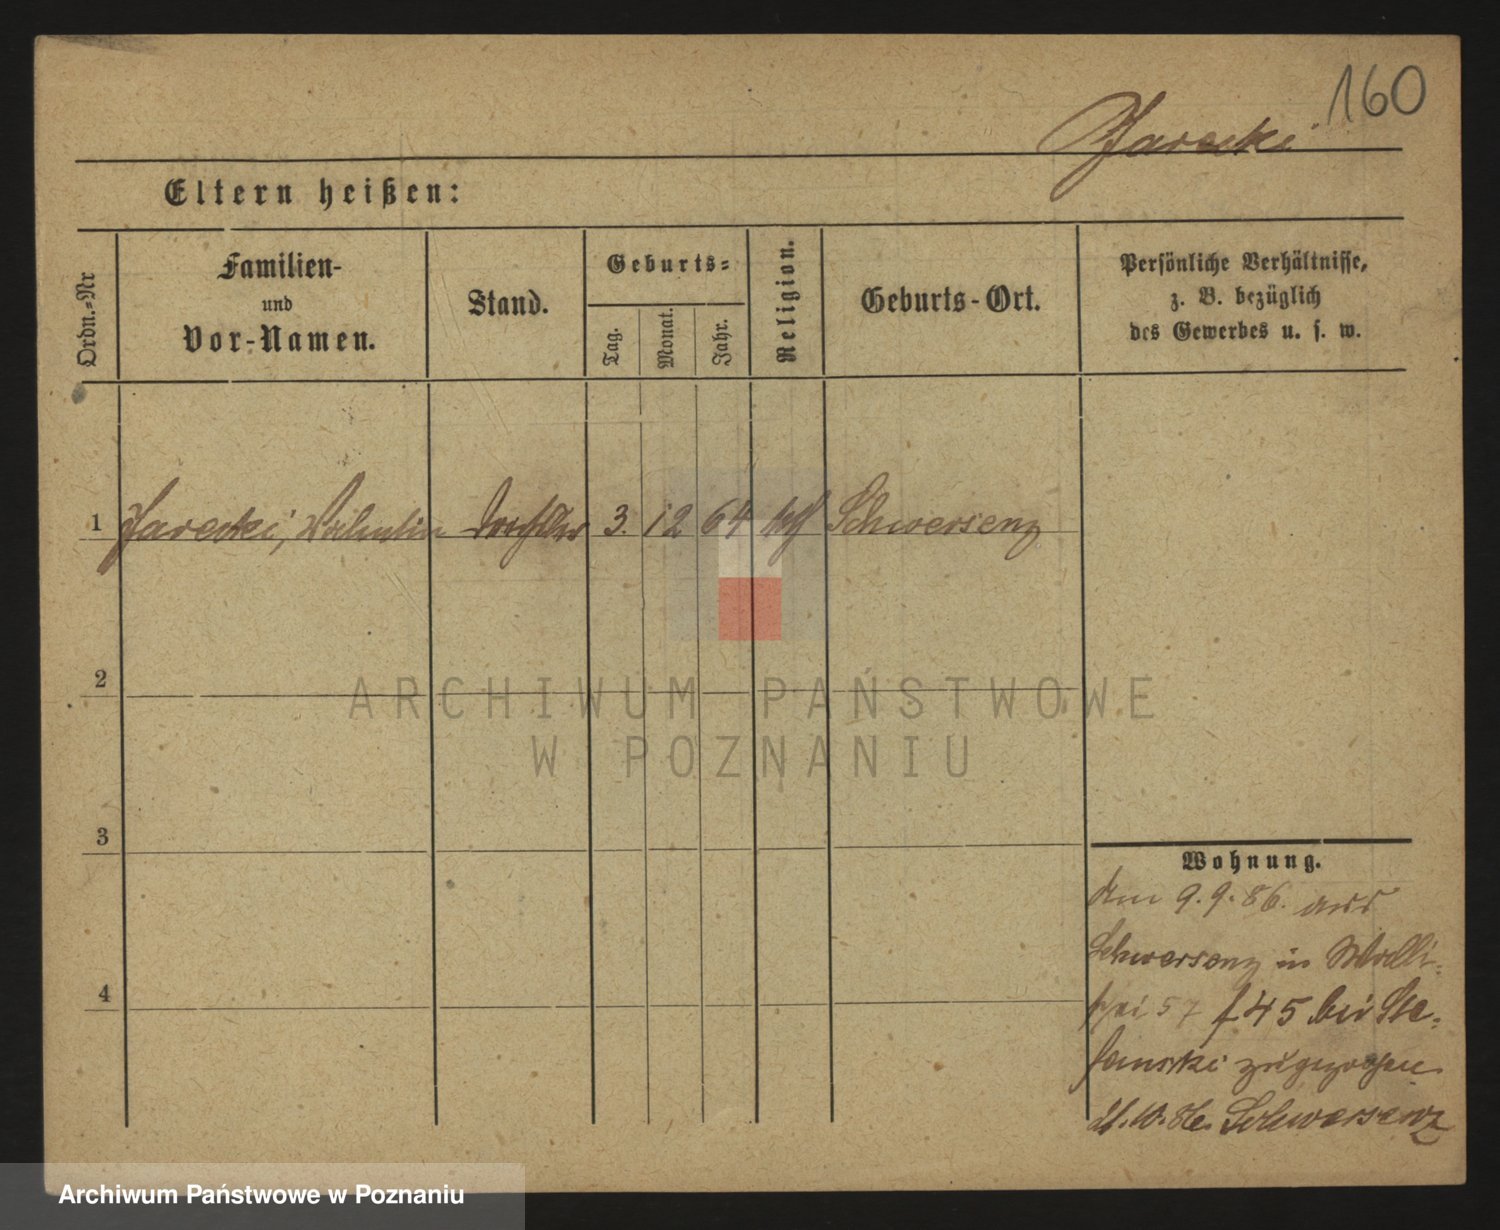 160
Jarecki
Eltern heißen:
Ordn.-Nr
Familien-
und
Vor-Namen.
Stand.
Geburts-
Tag.
Monat.
Jahr.
Religion.
Geburts-Ort.
Persönliche Verhältnisse,
z. B. bezüglich
des Gewerbes u. s. w.
1 Jarecki, Valentin 3. 12 64 kth Schwersenz
2
ARCHIWUM PAŃSTWOWE
W POZNANIU
3
Wohnung.
Am 9.9.86. aus
Schwersenz in
57 45 bei Ste-
fanski zugezogen
Schwersenz
4
Archiwum Państwowe w Poznaniu